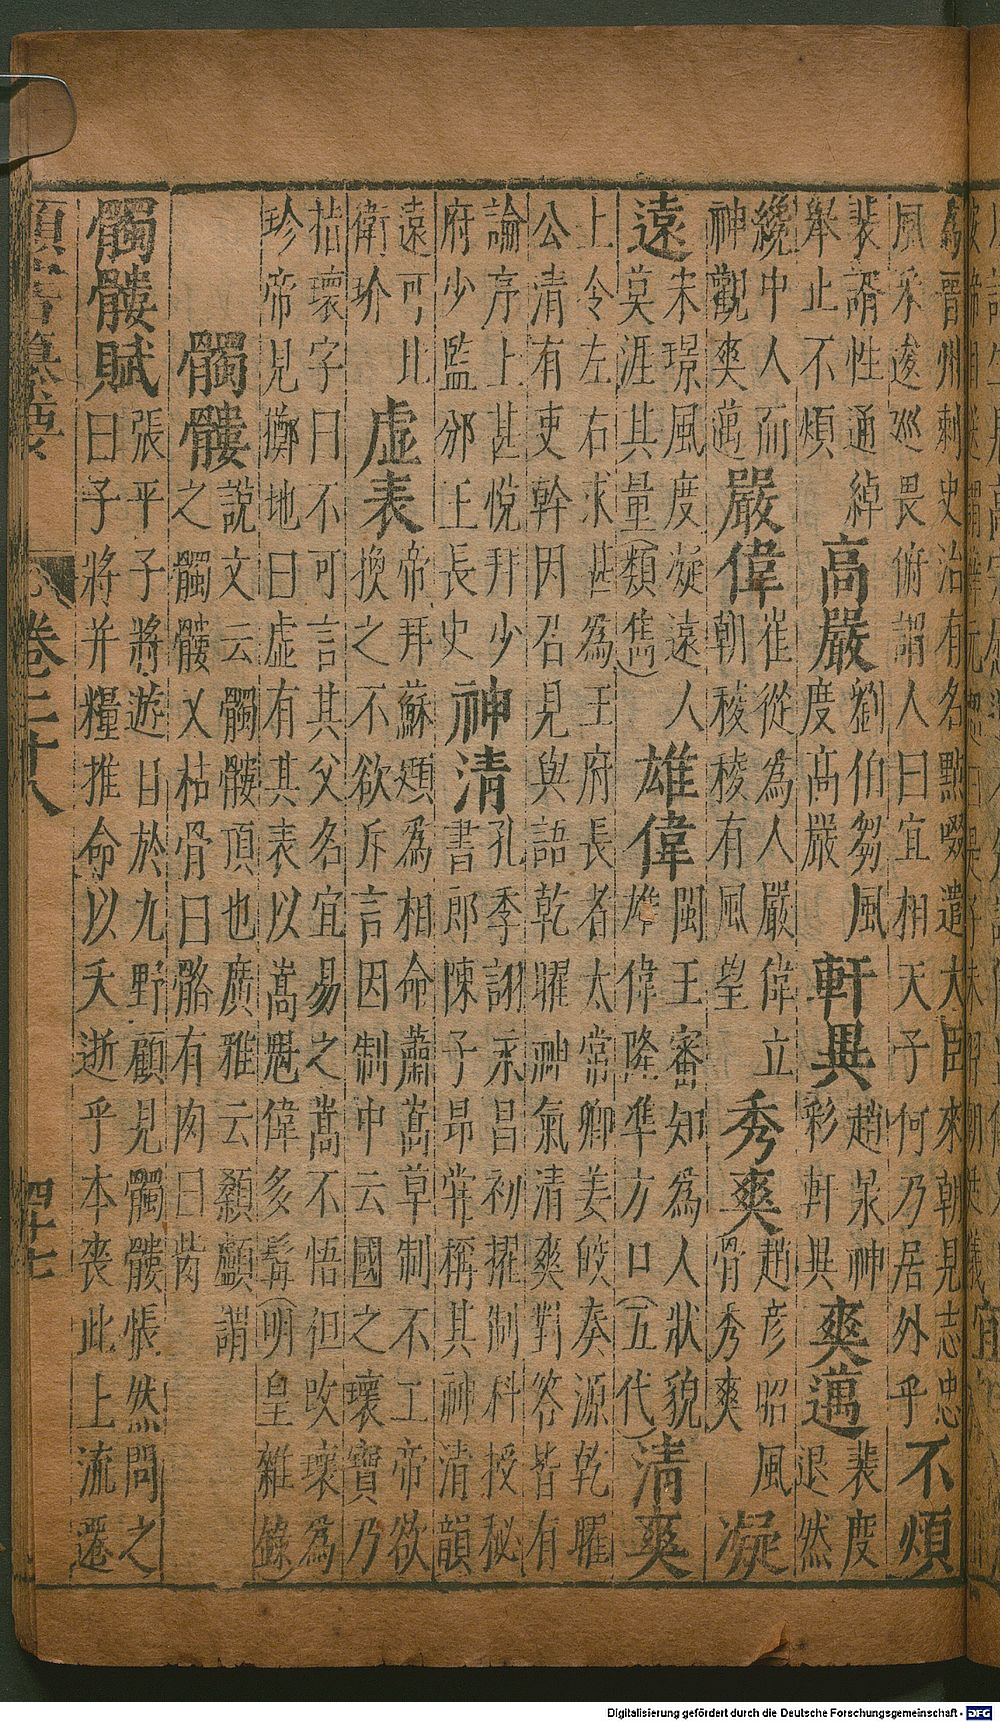 為晋州刺史治有名㸃啜遣大臣來朝見志忠
風采逡巡畏俯謂人曰宜相天子何乃居外乎
不煩
裴諝性通綽
舉止不煩
高嚴
劉伯芻風
度高嚴
軒異
趙杲神
彩軒異
爽邁
裴度
退然
纔中人而
神觀爽邁
嚴偉
崔從為人嚴偉立
朝稜稜有風望
秀爽
趙彦昭風
骨秀爽
凝
遠
朱璟風度凝遠人
莫涯其量(類雋)
雄偉
閩王審知為人狀貌
雄偉隆準方口(五代)
清爽
上令左右求甚為王府長者太常卿姜皎奏源乾曜
公清有吏幹因召見與語乾曜神氣清爽對答皆有
論序上甚悅拜少
府少監邠王長史
神清
孔季詡永昌初擢制科授秘
書郎陳子昂常稱其神清韻
遠可比
衛玠
虛表
帝拜蘇頲為相命蕭嵩草制不工帝欲
換之不欲斥言因制中云國之瓌寶乃
拈瓌字曰不可言其父名宜易之嵩不悟但改瓌為
珍帝見擲地曰虛有其表以嵩魁偉多髯(明皇雜錄)
髑髏
說文云髑髏頂也廣雅云顙顱謂
之髑髏又枯骨曰骼有肉曰胔
髑髏賦
張平子將遊目於九野顧見髑髏悵然問之
曰子將并糧推命以夭逝乎本喪此上流遷
類書纂要 卷二十八 四十七
Digitalisierung gefördert durch die Deutsche Forschungsgemeinschaft - DFG